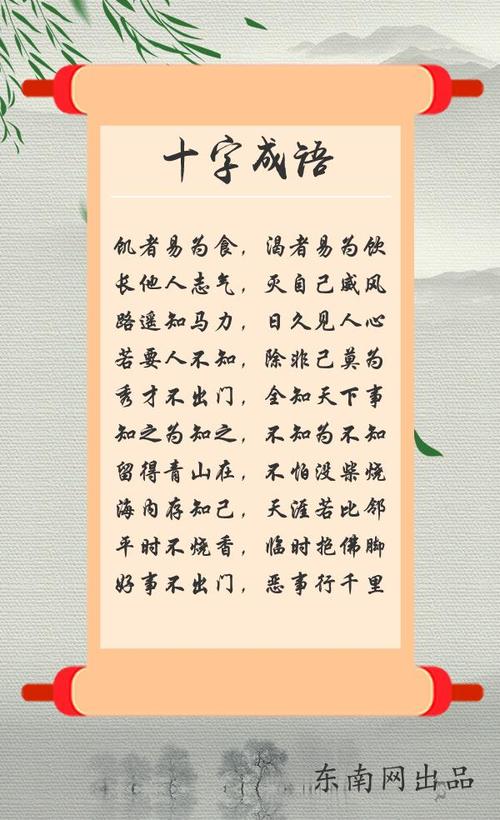 十字成语
饥者易为食，渴者易为饮
长他人志气，灭自己威风
路遥知马力，日久见人心
若要人不知，除非己莫为
秀才不出门，全知天下事
知之为知之，不知为不知
留得青山在，不怕没柴烧
海内存知己，天涯若比邻
平时不烧香，临时抱佛脚
好事不出门，恶事行千里
东南网出品